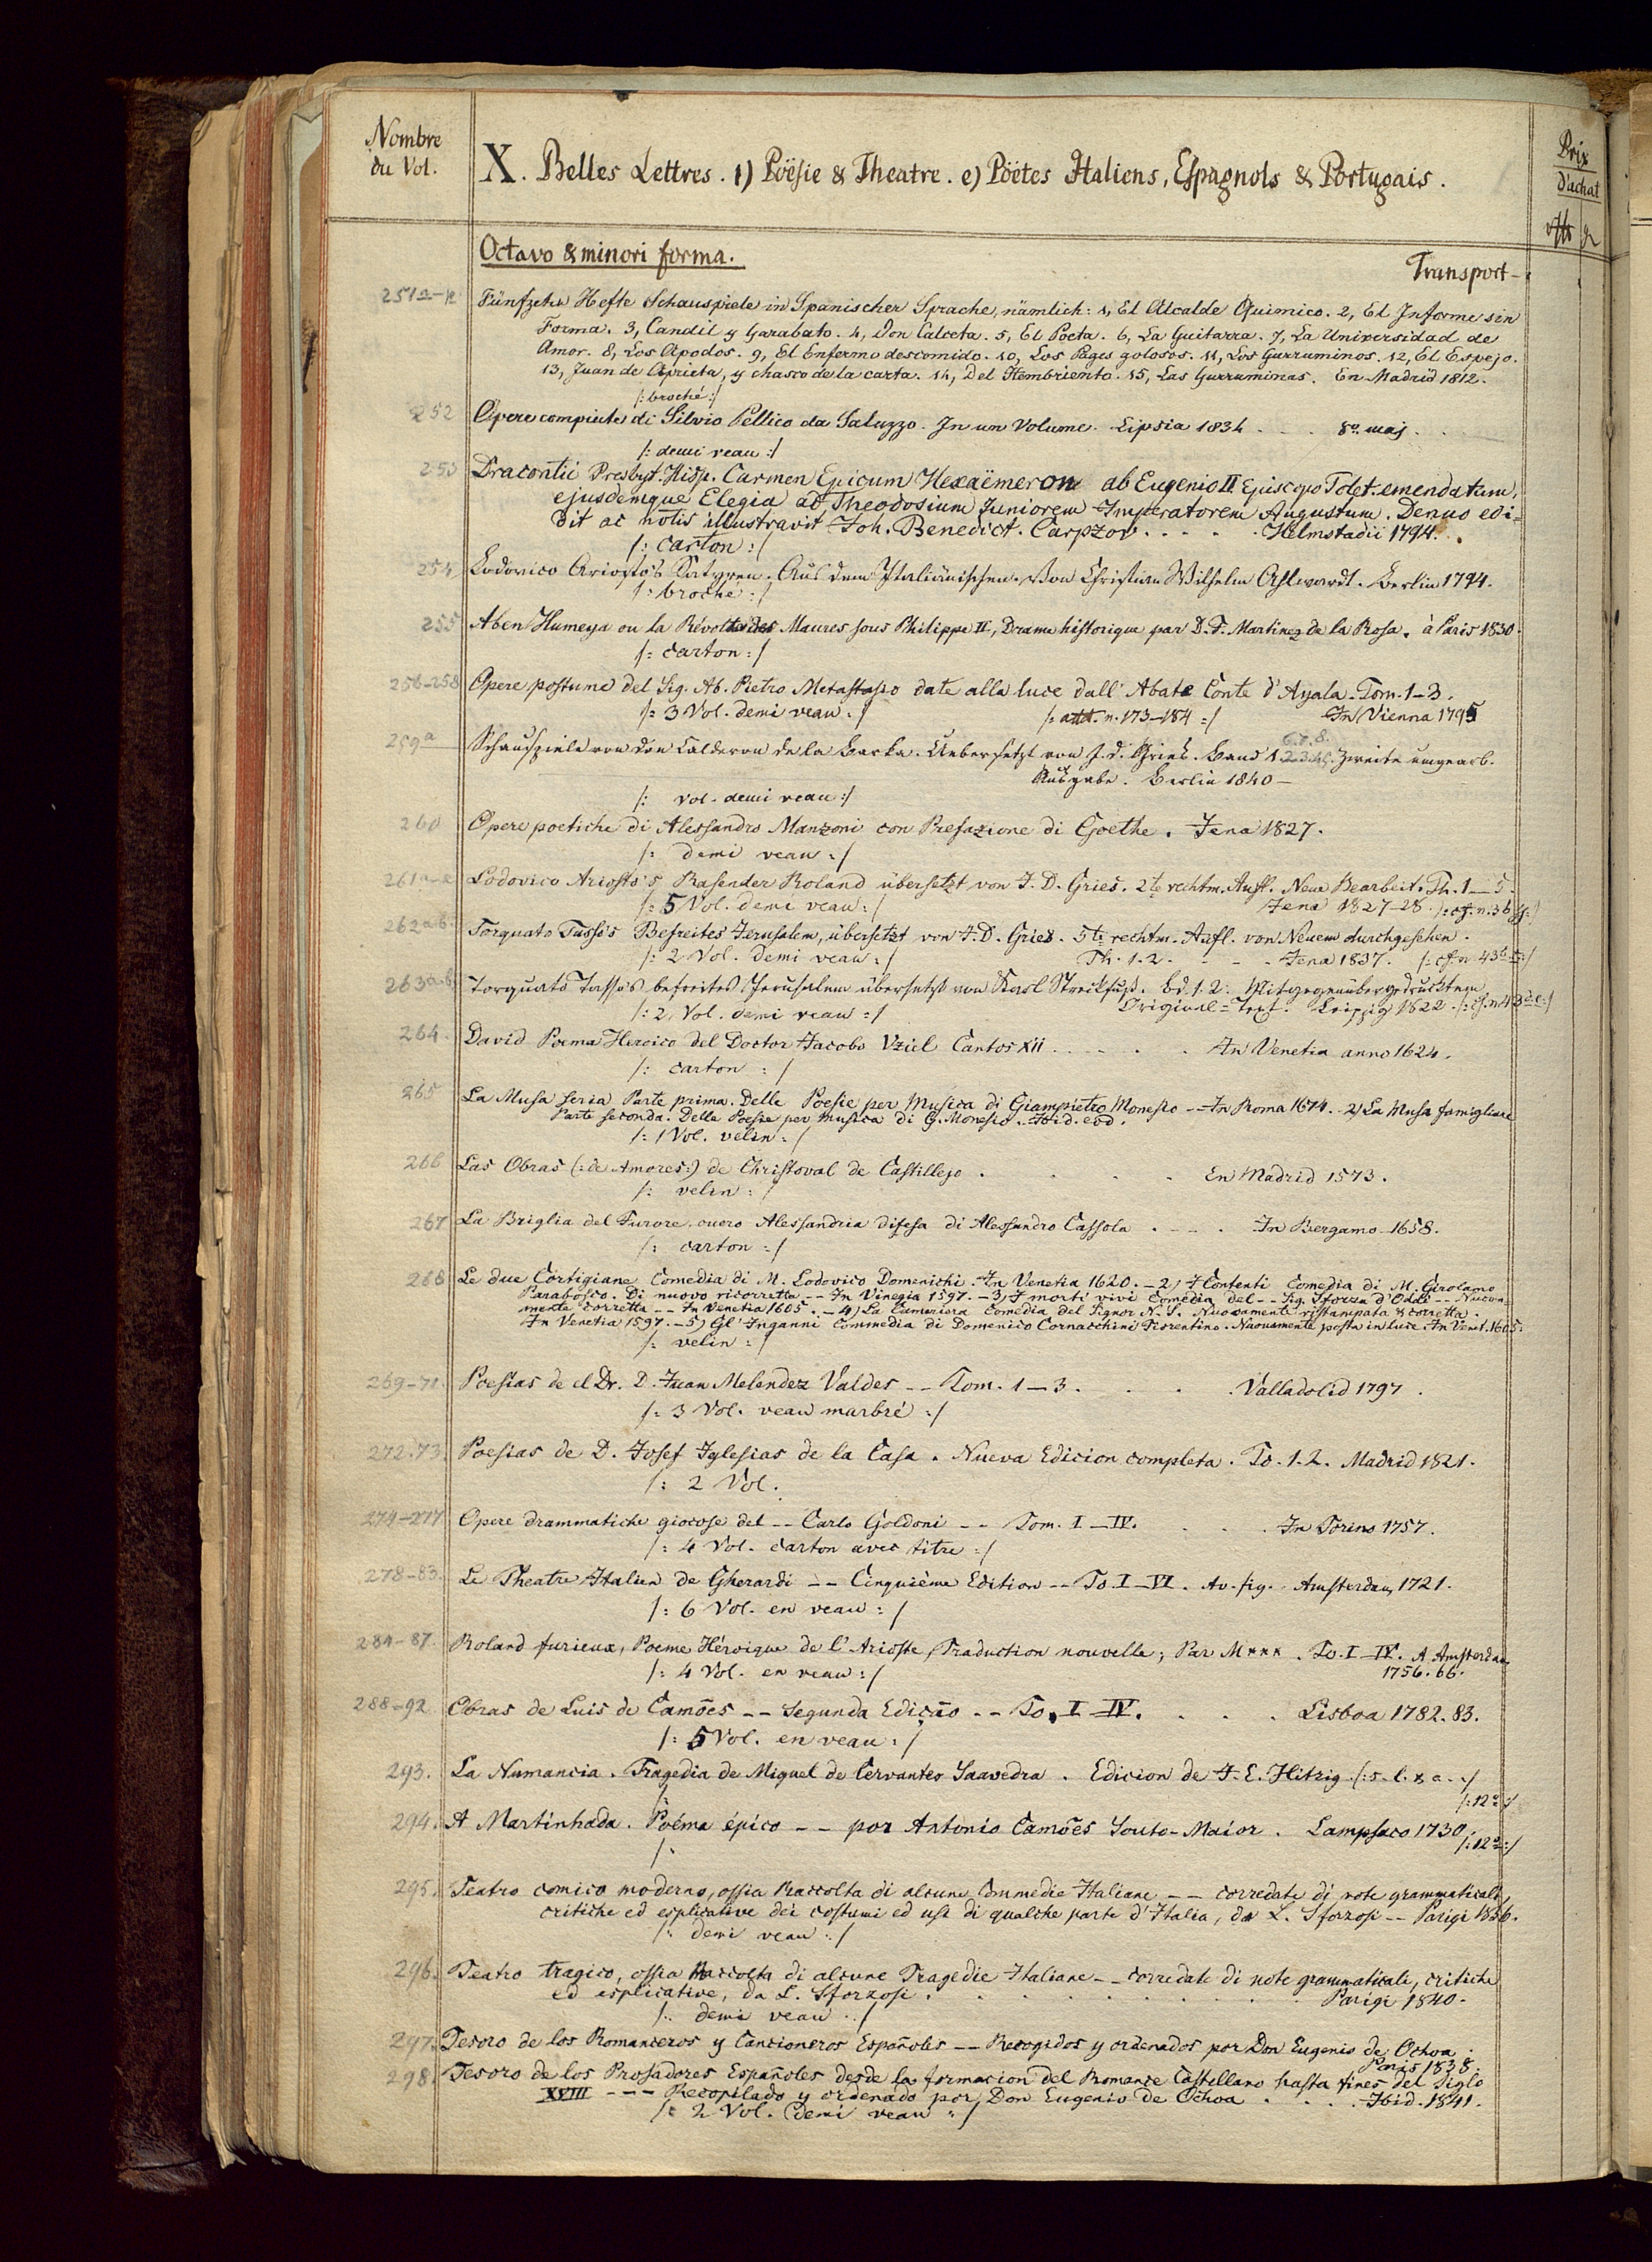 Nombre
du Vol.
X. Belles Lettres. 1) Poësie & Theatre. e) Poëtes Italiens, Espagnols & Portugais.
Prix
d'achat
Octavo & minori forma.
Transport-
251a-p Fünfzehn Hefte Schauspiele in Spanischer Sprache, nämlich: 1, El Alcalde Quimico. 2, El Informe sin
Forma. 3, Candil y Garabato. 4, Don Calceta. 5, El Poeta. 6, La Guitarra. 7, La Universidad de
Amor. 8, Los Apodos. 9, El Enfermo descomido. 10, Los Pages golosos. 11, Los Gurruminos. 12, El Espejo.
13, Juan de Aprieta, y chasco de la carta. 14, Del Hembriento. 15, Las Gurruminas. En Madrid 1812.
/: broché :/
252 Opere compiute di Silvio Pellico da Saluzzo. In un Volume. Lipsia 1834 . . . 8º maj.
/: demi veau :/
253 Dracontii Presbyt. Hisp. Carmen Epicum Hexaëmeron ab Eugenio II Episcopo Tolet. emendatum,
ejusdemque Elegia ad Theodosium Juniorem Imperatorem Augustum. Denuo edi=
dit ac notis illustravit Joh. Benedict. Carpzov . . . . Helmstadii 1794.
/: carton :/
254 Lodovico Ariosto's Satyren. Aus dem Italiänischen. Von Christian Wilhelm Ahlwardt. Berlin 1794.
/: broché :/
255 Aben Humeya ou la Révolte des Maures sous Philippe II, Drame historique par D. F. Martinez de la Rosa. à Paris 1830.
/: carton :/
256-258 Opere postume del Sig. Ab. Pietro Metastasio date alla luce dall' Abate Conte d'Ayala. Tom. 1-3.
/: 3 Vol. demi veau :/ /: att. n. 173-184 :/ In Vienna 1795
6.7.8.
259a Schauspiele von Don Calderon de la Barka. Uebersetzt von J. D. Gries. Band 1.2.3.4.5. Zweite umgearb.
Ausgabe. Berlin 1840 –
/: vol. demi veau :/
260 Opere poetiche di Alessandro Manzoni con Prefazione di Goethe. Jena 1827.
/: demi veau :/
261a-e Lodovico Ariosto's Rasender Roland übersetzt von J. D. Gries. 2te rechtm. Aufl. Neue Bearbeit. Th. 1-5.
/: 5 Vol. demi veau :/ Jena 1827-28. /: cf. n. 36
262a.b. Torquato Tasso's Befreites Jerusalem, übersetzt von J. D. Gries. 5te rechtm. Aufl. von Neuem durchgesehen.
/: 2 Vol. demi veau :/ Th. 1.2. - . . Jena 1837. /: cf. n. 43b
263a.b. Torquato Tasso's befreites Jerusalem übersetzt von Karl Streckfuß. Bd. 1.2. Mit gegenübergedrucktem
/: 2 Vol. demi veau :/ Original=Text. Leipzig 1822. /: cf. n. 43 d.e :/
264. David Poema Heroico del Doctor Jacobo Vziel Cantos XII . . . . . In Venetia anno 1624.
/: carton :/
265 La Musa seria Parte prima. Delle Poesie per Musica di Giampietro Monesio -- In Roma 1674. - 2) La Musa famigliare
Parte seconda. Delle Poesie per musica di G. Monesio. Ibid. eod.
/: 1 Vol. velin :/
266 Las Obras (: de Amores :) de Christoval de Castillejo . . . . En Madrid 1573.
/: velin :/
267 La Briglia del Furore. ouero Alessandria difesa di Alessandro Cassola . . . . In Bergamo 1658.
/: carton :/
268 Le due Cortigiane Comedia di M. Lodovico Domenichi. In Venetia 1620. - 2) I Contenti Comedia di M. Girolamo
Parabosco. Di nuovo ricorretta -- In Vinegia 1597. - 3) I morti vivi Comedia del -- Sig. Sforza d'Oddi -- Nuova=
mente corretta -- In Venetia 1605. - 4) La Cameriera Comedia del Signor N. S. Nuovamente ristampata & corretta.
In Venetia 1597. - 5) Gl' Inganni Commedia di Domenico Cornacchini Fiorentino. Nuovamente posta in luce. In Venet. 1605.
/: velin :/
269-71. Poesias de el Dr. D. Juan Melendez Valdes -- Tom. 1-3. . . . Valladolid 1797.
/: 3 Vol. veau marbré :/
272.73. Poesias de D. Josef Iglesias de la Casa. Nueva Edicion completa. To. 1.2. Madrid 1821.
/: 2 Vol.
274-277 Opere drammatiche giocose del -- Carlo Goldoni -- Tom. I-IV. . . . In Torino 1757.
/: 4 Vol. carton avec titre :/
278-83. Le Theatre Italien de Gherardi -- Cinquième Edition -- To. I-VI. Av. fig. Amsterdam 1721.
/: 6 Vol. en veau :/
284-87. Roland furieux, Poeme Héroique de l'Arioste, Traduction nouvelle, Par M***. To. I-IV. A Amsterdam
/: 4 Vol. en veau :/ 1756.66.
288-92. Obras de Luis de Camões -- Segunda Edição -- To. I-IV. . . . . Lisboa 1782.83.
/: 5 Vol. en veau :/
293. La Numancia. Tragedia de Miguel de Cervantes Saavedra. Edicion de J. E. Hitzig. (: s. l. & a. :/
/: 12º :/
294. A Martinhada. Poéma épico -- por Antonio Camões Souto-Maior. Lampsaco 1730.
/: 12º :/
295. Teatro comico moderno, ossia Raccolta di alcune Commedie Italiane -- corredate di note grammaticali,
critiche ed esplicative dei costumi ed usi di qualche parte d'Italia, da L. Sforzosi -- Parigi 1836.
/: demi veau :/
296. Teatro tragico, ossia Raccolta di alcune Tragedie Italiane -- corredate di note grammaticali, critiche
ed esplicative, da L. Sforzosi . . . . . . . . Parigi 1840.
/: demi veau :/
297. Tesoro de los Romanceros y Cancioneros Españoles -- Recogidos y ordenados por Don Eugenio de Ochoa.
Paris 1838.
298. Tesoro de los Prosadores Españoles desde la formacion del Romance Castellano hasta fines del Siglo
XVIII --- Recopilado y ordenado por Don Eugenio de Ochoa . . . . Ibid. 1841.
/: 2 Vol. demi veau :/